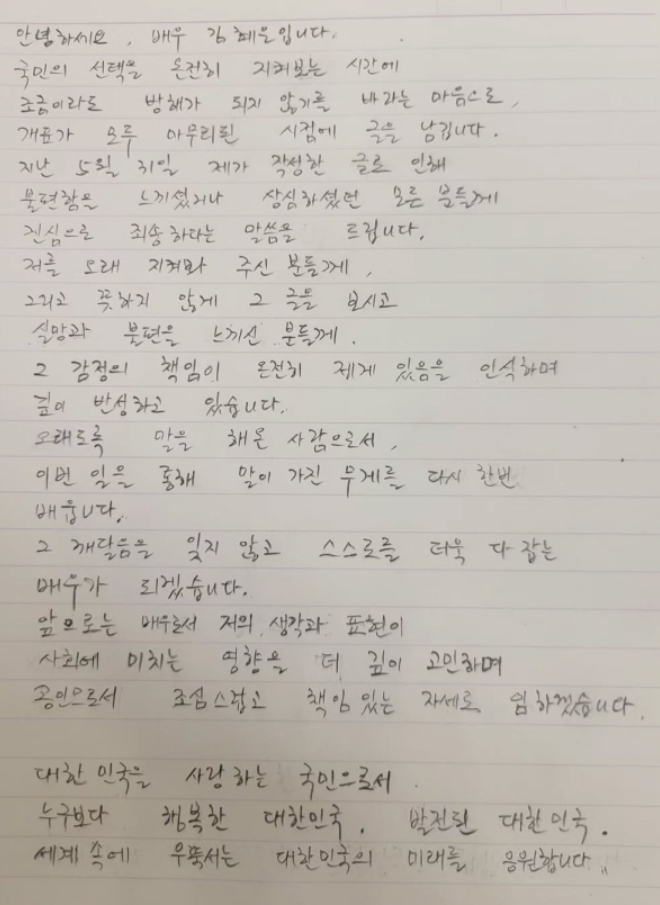 안녕하세요, 배우 김혜은입니다.
국민의 선택을 온전히 지켜보는 시간에
조금이라도 방해가 되지 않기를 바라는 마음으로,
개표가 모두 마무리된 시점에 글을 남깁니다.
지난 5월 31일 제가 작성한 글로 인해
불편함을 느끼셨거나 상심하셨던 모든 분들께
진심으로 죄송하다는 말씀을 드립니다.
저를 오래 지켜봐 주신 분들께,
그리고 뜻하지 않게 그 글을 보시고
실망과 불편을 느끼신 분들께.
그 감정의 책임이 온전히 제게 있음을 인식하며
깊이 반성하고 있습니다.
오래도록 말을 해온 사람으로서,
이번 일을 통해 말이 가진 무게를 다시 한번
배웁니다.
그 깨달음을 잊지 않고 스스로를 더욱 다잡는
배우가 되겠습니다.
앞으로는 배우로서 저의 생각과 표현이
사회에 미치는 영향을 더 깊이 고민하며
공인으로서 조심스럽고 책임 있는 자세로 임하겠습니다.
대한민국을 사랑하는 국민으로서
누구보다 행복한 대한민국, 발전된 대한민국.
세계 속에 우뚝서는 대한민국의 미래를 응원합니다.,